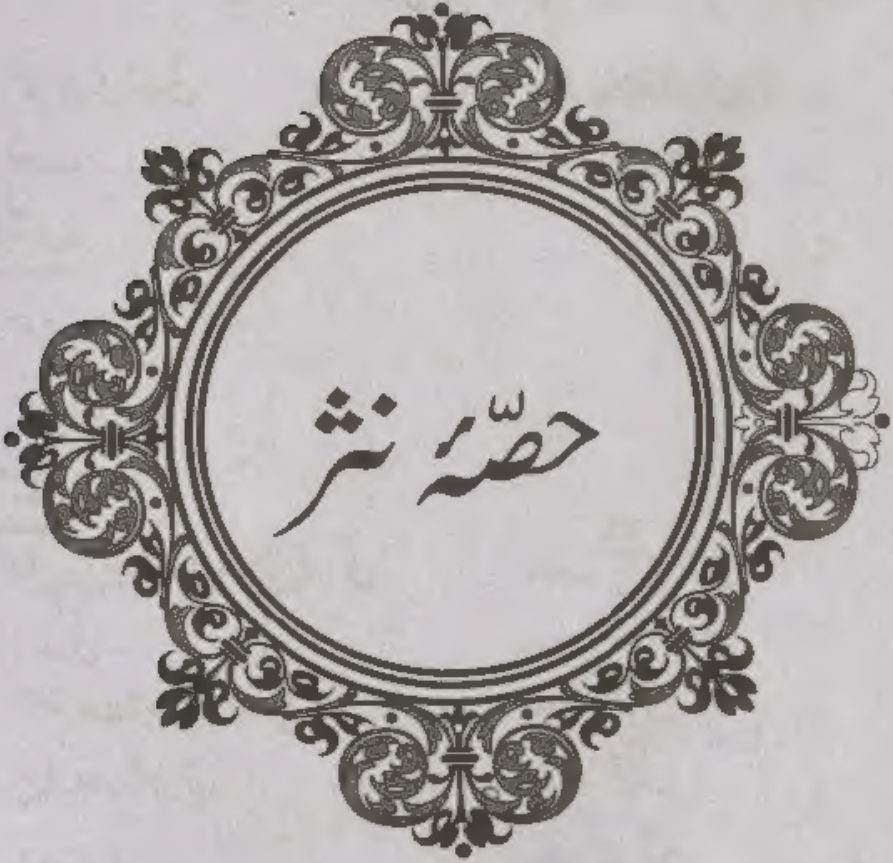 حصّۂ نثر